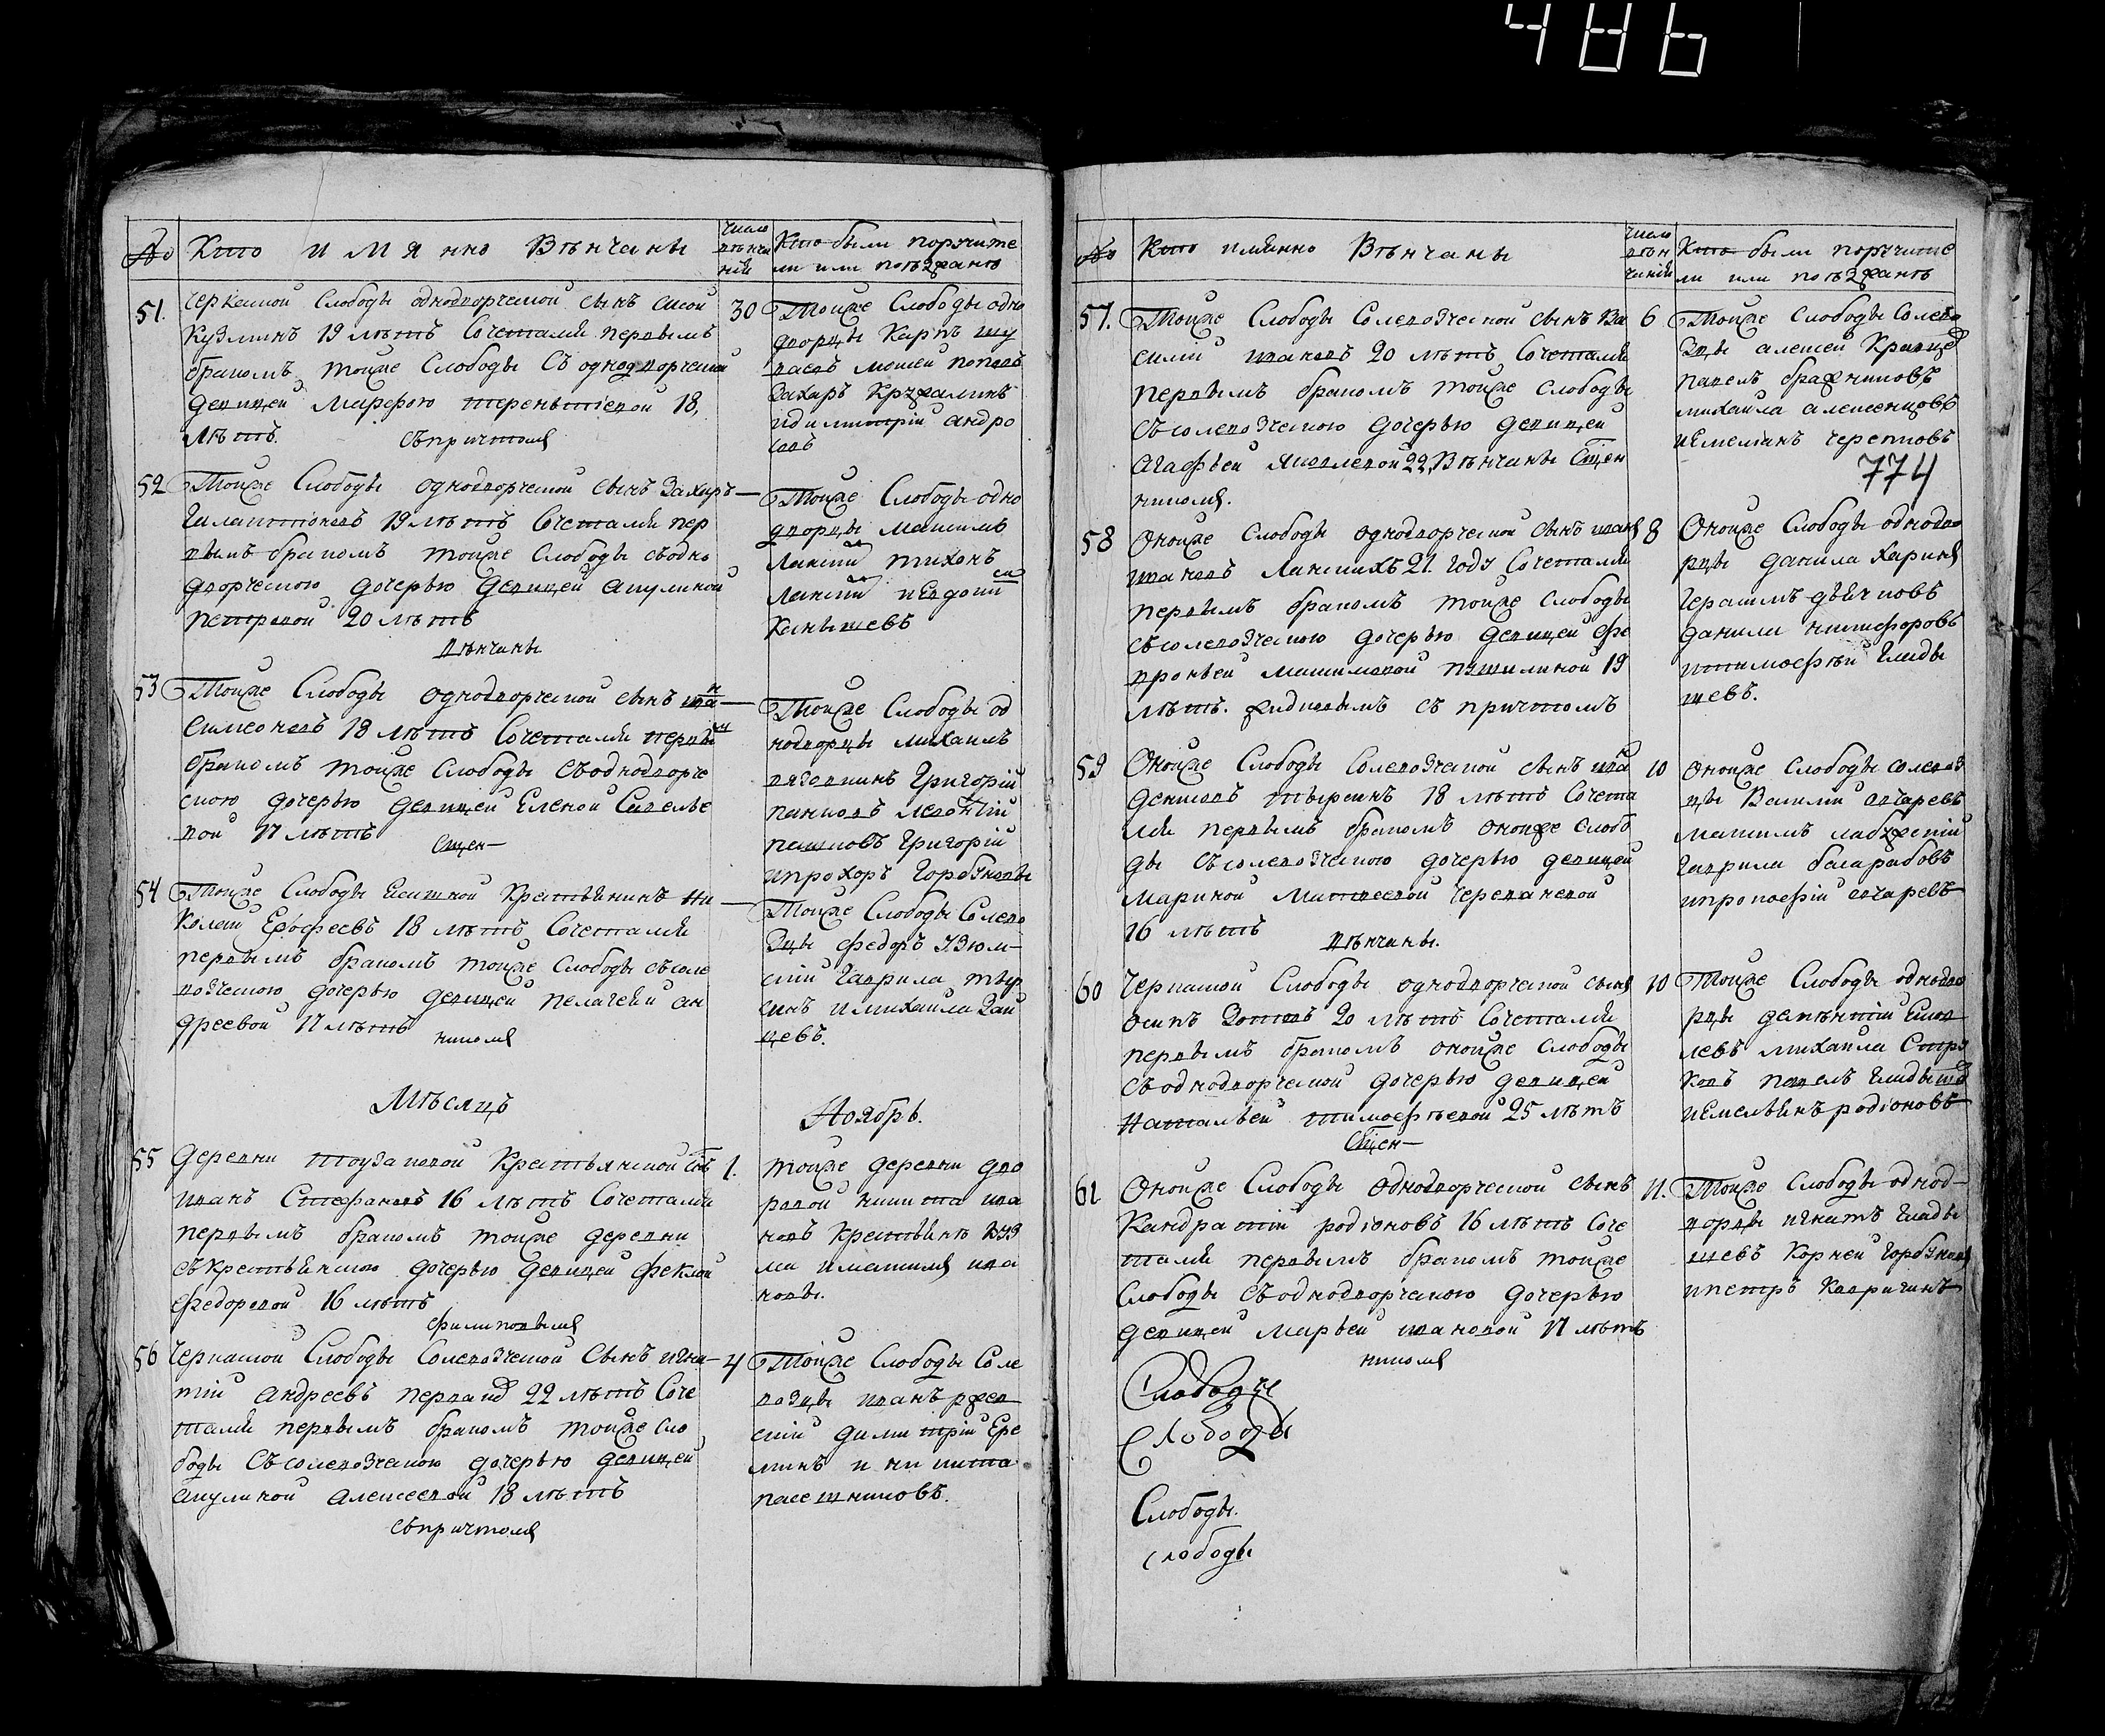 486
№ Кто имянно Вѣнчаны
число вѣнчаній
Кто были поручите
ли или поѣзжанѣ
51. Черкаской Слободы однодворческой сынъ сисой
Кузминъ 19 лѣтъ Сочетался первымъ
бракомъ тойже Слободы съ однодворческой
девицей Марфою терентіевой 18
лѣтъ. съ причтомъ
30 Тойже Слободы одно
дворцы Карпъ
моисей поповъ
Захаръ
идимитрій андро
совъ
52 Тойже Слободы однодворческой сынъ Захаръ
Галактіоновъ 19 лѣтъ Сочетался пер
вымъ бракомъ тойже Слободы съодно
дворческою дочерью девицей акулиной
петровой 20 лѣтъ
вѣнчаны
Тойже Слободы одно
дворцы максимъ
Ланской тихонъ
Ланской иЕвдоким
Канышевъ
53 Тойже Слободы однодворческой сынъ иванъ
Симеоновъ 18 лѣтъ Сочетался первым
бракомъ тойже Слободы съоднодворче
скою дочерью девицей Еленой Савелье
вой 17 лѣтъ
Сщен
Тойже Слободы од
нодворцы михаилъ
Григорій
панковъ леонтій
пашковъ Григорій
ипрохоръ Горбуновы
54 Тойже Слободы Крестьянинъ ни
колай Ерофеевъ 18 лѣтъ Сочетался
первымъ бракомъ тойже Слободы съсоле
возческою дочерью девицей пелагеей ан
дреевой 17 лѣтъ
никомъ
Тойже Слободы Солево
зцы федоръ Узюм
скій Гаврила тыр
синъ имихайла Зай
цевъ.
Мѣсяцъ Ноябрь.
55 Деревни Тоузаковой Крестьянской сынъ
иванъ Стефановъ 16 лѣтъ Сочетался
первымъ бракомъ тойже деревни
съкрестьянскою дочерью девицей феклой
федоровой 16 лѣтъ
филиповымъ
1. тойже деревни дво
ровой никита ива
новъ крестьяня куз
ма имаксимъ ива
новы.
56 Черкаской Слободы Солевозческой Сынъ игна
тій андреевъ 22 лѣтъ Соче
тался первымъ бракомъ тойже Сло
боды Съсолевозческою дочерью девицей
акулиной алексеевой 18 лѣтъ
съпричтомъ
4 Тойже Слободы Соле
возцы иванъ ржев
скій димитрій Ере
минъ и никита
пасешниковъ.
№ Кто имянно Вѣнчаны
число вѣнчаній
Кто были поручите
ли или поѣзжанѣ
57. Тойже Слободы Солевозческой сынъ Ва
силій ивановъ 20 лѣтъ Сочетался
первымъ бракомъ тойже слободы
съсолевозческою дочерью девицей
агафьей яковлевой 22 Вѣнчаны Сщен
никомъ.
6 Тойже Слободы Солево
зцы алексей
павелъ бражниковъ
михаила алексенцовъ
иЕмельянъ черепновъ
774
58 Онойже Слободы однодворческой сынъ иванъ
ивановъ Ланскихъ 21 году Сочетался
первымъ бракомъ тойже слободы
съсолевозческою дочерью девицей фе
вроньей максимовой 19
лѣтъ. съ причтомъ
8 Онойже Слободы однодво
рцы данила Харинъ
Герасимъ
данила никифоровъ
итимофей Глады
шевъ.
59 Онойже Слободы Солевозческой сынъ иванъ
денисовъ тырсинъ 18 лѣтъ Сочета
лся первымъ бракомъ онойже слобо
ды съсолевозческою дочерью девицей
мариной матвеевой
16 лѣтъ
вѣнчаны.
10 Онойже Слободы солевоз
цы Василій овчаревъ
максимъ
Гаврила басарабовъ
ипрокофій овчаревъ
60 Черкаской Слободы однодворческой сынъ
осипъ Зотовъ 20 лѣтъ Сочетался
первымъ бракомъ онойже слободы
съоднодворческой дочерью девицей
натальей тимофѣевой 25 лѣтъ
Сщен
10 Тойже Слободы однодво
рцы
михайла Стру
ковъ павелъ Гладышевъ
иЕмельянъ родіоновъ
61 Онойже Слободы Однодворческой сынъ
Кандратій родіоновъ 16 лѣтъ Соче
тался первымъ бракомъ тойже
Слободы съоднодворческою дочерью
девицей марьей ивановой 17 лѣтъ
никомъ
11. Тойже Слободы однод
ворцы игнатъ Глады
шевъ Корней Горбуновъ
ипетръ
Слободы
Слободы
Слободы.
слободы